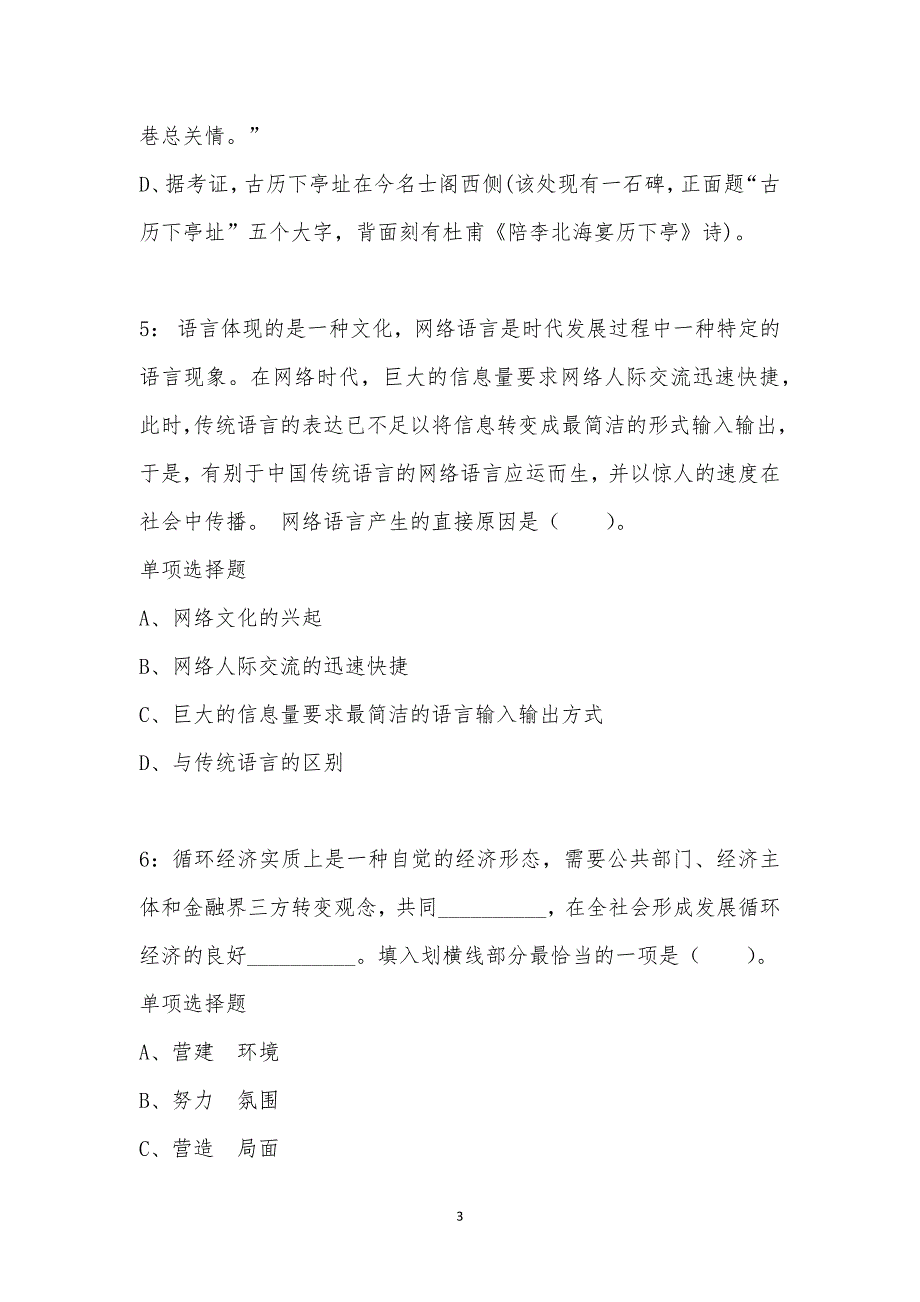 巷总关情。”
D、据考证，古历下亭址在今名士阁西侧(该处现有一石碑，正面题“古
历下亭址”五个大字，背面刻有杜甫《陪李北海宴历下亭》诗)。
5： 语言体现的是一种文化，网络语言是时代发展过程中一种特定的
语言现象。在网络时代，巨大的信息量要求网络人际交流迅速快捷，
此时，传统语言的表达已不足以将信息转变成最简洁的形式输入输出，
于是，有别于中国传统语言的网络语言应运而生，并以惊人的速度在
社会中传播。 网络语言产生的直接原因是（　　）。
单项选择题
A、网络文化的兴起
B、网络人际交流的迅速快捷
C、巨大的信息量要求最简洁的语言输入输出方式
D、与传统语言的区别
6：循环经济实质上是一种自觉的经济形态，需要公共部门、经济主
体和金融界三方转变观念，共同__________，在全社会形成发展循环
经济的良好__________。填入划横线部分最恰当的一项是（　　）。
单项选择题
A、营建　环境
B、努力　氛围
C、营造　局面
3